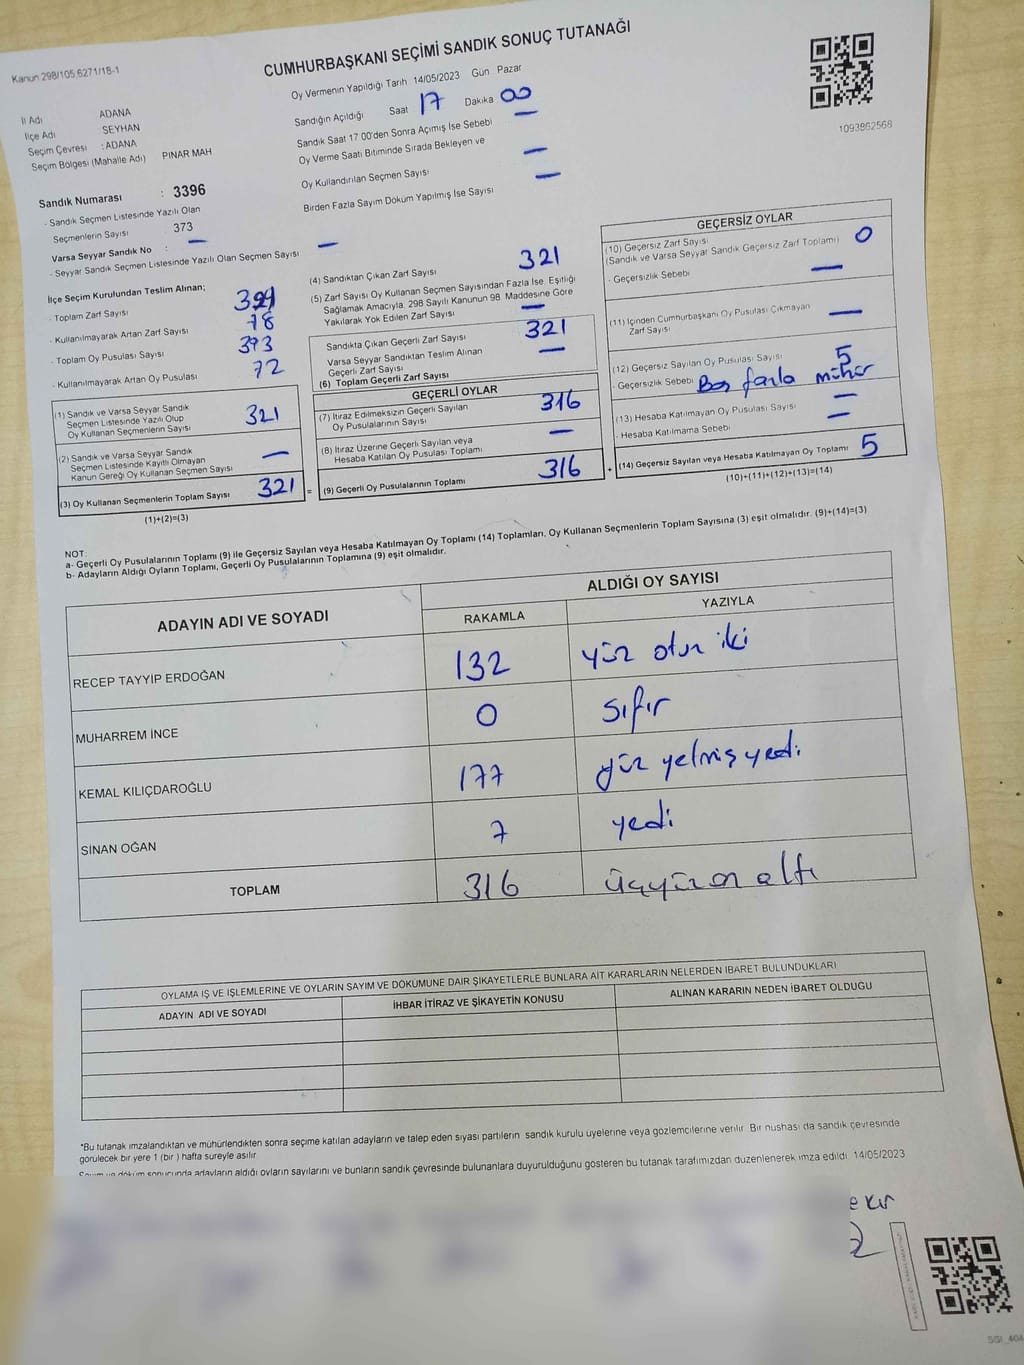 Kanun 298/105,6271/18-1
CUMHURBAŞKANI SEÇİMİ SANDIK SONUÇ TUTANAĞI
1093862568
İl Adı ADANA
İlçe Adı SEYHAN
Seçim Çevresi : ADANA
Seçim Bölgesi (Mahalle Adı) PINAR MAH
Oy Vermenin Yapıldığı Tarih 14/05/2023 Gün Pazar
Sandığın Açıldığı Saat 17 Dakika 00
Sandık Saat 17:00'den Sonra Açılmış İse Sebebi —
Oy Verme Saati Bitiminde Sırada Bekleyen ve
Oy Kullandırılan Seçmen Sayısı —
Birden Fazla Sayım Döküm Yapılmış İse Sayısı —
Sandık Numarası : 3396
- Sandık Seçmen Listesinde Yazılı Olan
Seçmenlerin Sayısı : 373
Varsa Seyyar Sandık No : —
- Seyyar Sandık Seçmen Listesinde Yazılı Olan Seçmen Sayısı —
İlçe Seçim Kurulundan Teslim Alınan;
- Toplam Zarf Sayısı
- Kullanılmayarak Artan Zarf Sayısı 78
- Toplam Oy Pusulası Sayısı 393
- Kullanılmayarak Artan Oy Pusulası 72
(1) Sandık ve Varsa Seyyar Sandık
Seçmen Listesinde Yazılı Olup
Oy Kullanan Seçmenlerin Sayısı 321
(2) Sandık ve Varsa Seyyar Sandık
Seçmen Listesinde Kayıtlı Olmayan
Kanun Gereği Oy Kullanan Seçmen Sayısı —
(3) Oy Kullanan Seçmenlerin Toplam Sayısı 321
(1)+(2)=(3)
(4) Sandıktan Çıkan Zarf Sayısı 321
(5) Zarf Sayısı Oy Kullanan Seçmen Sayısından Fazla İse, Eşitliği
Sağlamak Amacıyla, 298 Sayılı Kanunun 98. Maddesine Göre
Yakılarak Yok Edilen Zarf Sayısı —
Sandıkta Çıkan Geçerli Zarf Sayısı 321
Varsa Seyyar Sandıktan Teslim Alınan
Geçerli Zarf Sayısı —
(6) Toplam Geçerli Zarf Sayısı
GEÇERLİ OYLAR
(7) İtiraz Edilmeksizin Geçerli Sayılan
Oy Pusulalarının Sayısı 316
(8) İtiraz Üzerine Geçerli Sayılan veya
Hesaba Katılan Oy Pusulası Toplamı —
= (9) Geçerli Oy Pusulalarının Toplamı 316
GEÇERSİZ OYLAR
(10) Geçersiz Zarf Sayısı
(Sandık ve Varsa Seyyar Sandık Geçersiz Zarf Toplamı) 0
- Geçersizlik Sebebi —
(11) İçinden Cumhurbaşkanı Oy Pusulası Çıkmayan
Zarf Sayısı —
(12) Geçersiz Sayılan Oy Pusulası Sayısı 5
- Geçersizlik Sebebi fazla mühür
(13) Hesaba Katılmayan Oy Pusulası Sayısı —
- Hesaba Katılmama Sebebi —
+ (14) Geçersiz Sayılan veya Hesaba Katılmayan Oy Toplamı 5
(10)+(11)+(12)+(13)=(14)
NOT:
a- Geçerli Oy Pusulalarının Toplamı (9) ile Geçersiz Sayılan veya Hesaba Katılmayan Oy Toplamı (14) Toplamları, Oy Kullanan Seçmenlerin Toplam Sayısına (3) eşit olmalıdır. (9)+(14)=(3)
b- Adayların Aldığı Oyların Toplamı, Geçerli Oy Pusulalarının Toplamına (9) eşit olmalıdır.
ADAYIN ADI VE SOYADI ALDIĞI OY SAYISI
RAKAMLA YAZIYLA
RECEP TAYYİP ERDOĞAN 132 yüz otuz iki
MUHARREM İNCE 0 sıfır
KEMAL KILIÇDAROĞLU 177 yüz yetmiş yedi
SİNAN OĞAN 7 yedi
TOPLAM 316 üçyüz on altı
OYLAMA İŞ VE İŞLEMLERİNE VE OYLARIN SAYIM VE DÖKÜMÜNE DAİR ŞİKAYETLERLE BUNLARA AİT KARARLARIN NELERDEN İBARET BULUNDUKLARI
ADAYIN ADI VE SOYADI İHBAR İTİRAZ VE ŞİKAYETİN KONUSU ALINAN KARARIN NEDEN İBARET OLDUĞU
*Bu tutanak imzalandıktan ve mühürlendikten sonra seçime katılan adayların ve talep eden siyasi partilerin sandık kurulu üyelerine veya gözlemcilerine verilir. Bir nushası da sandık çevresinde
görülecek bir yere 1 (bir ) hafta süreyle asılır.
Sayım ve döküm sonucunda adayların aldığı oyların sayılarını ve bunların sandık çevresinde bulunanlara duyurulduğunu gösteren bu tutanak tarafımızdan düzenlenerek imza edildi. 14/05/2023